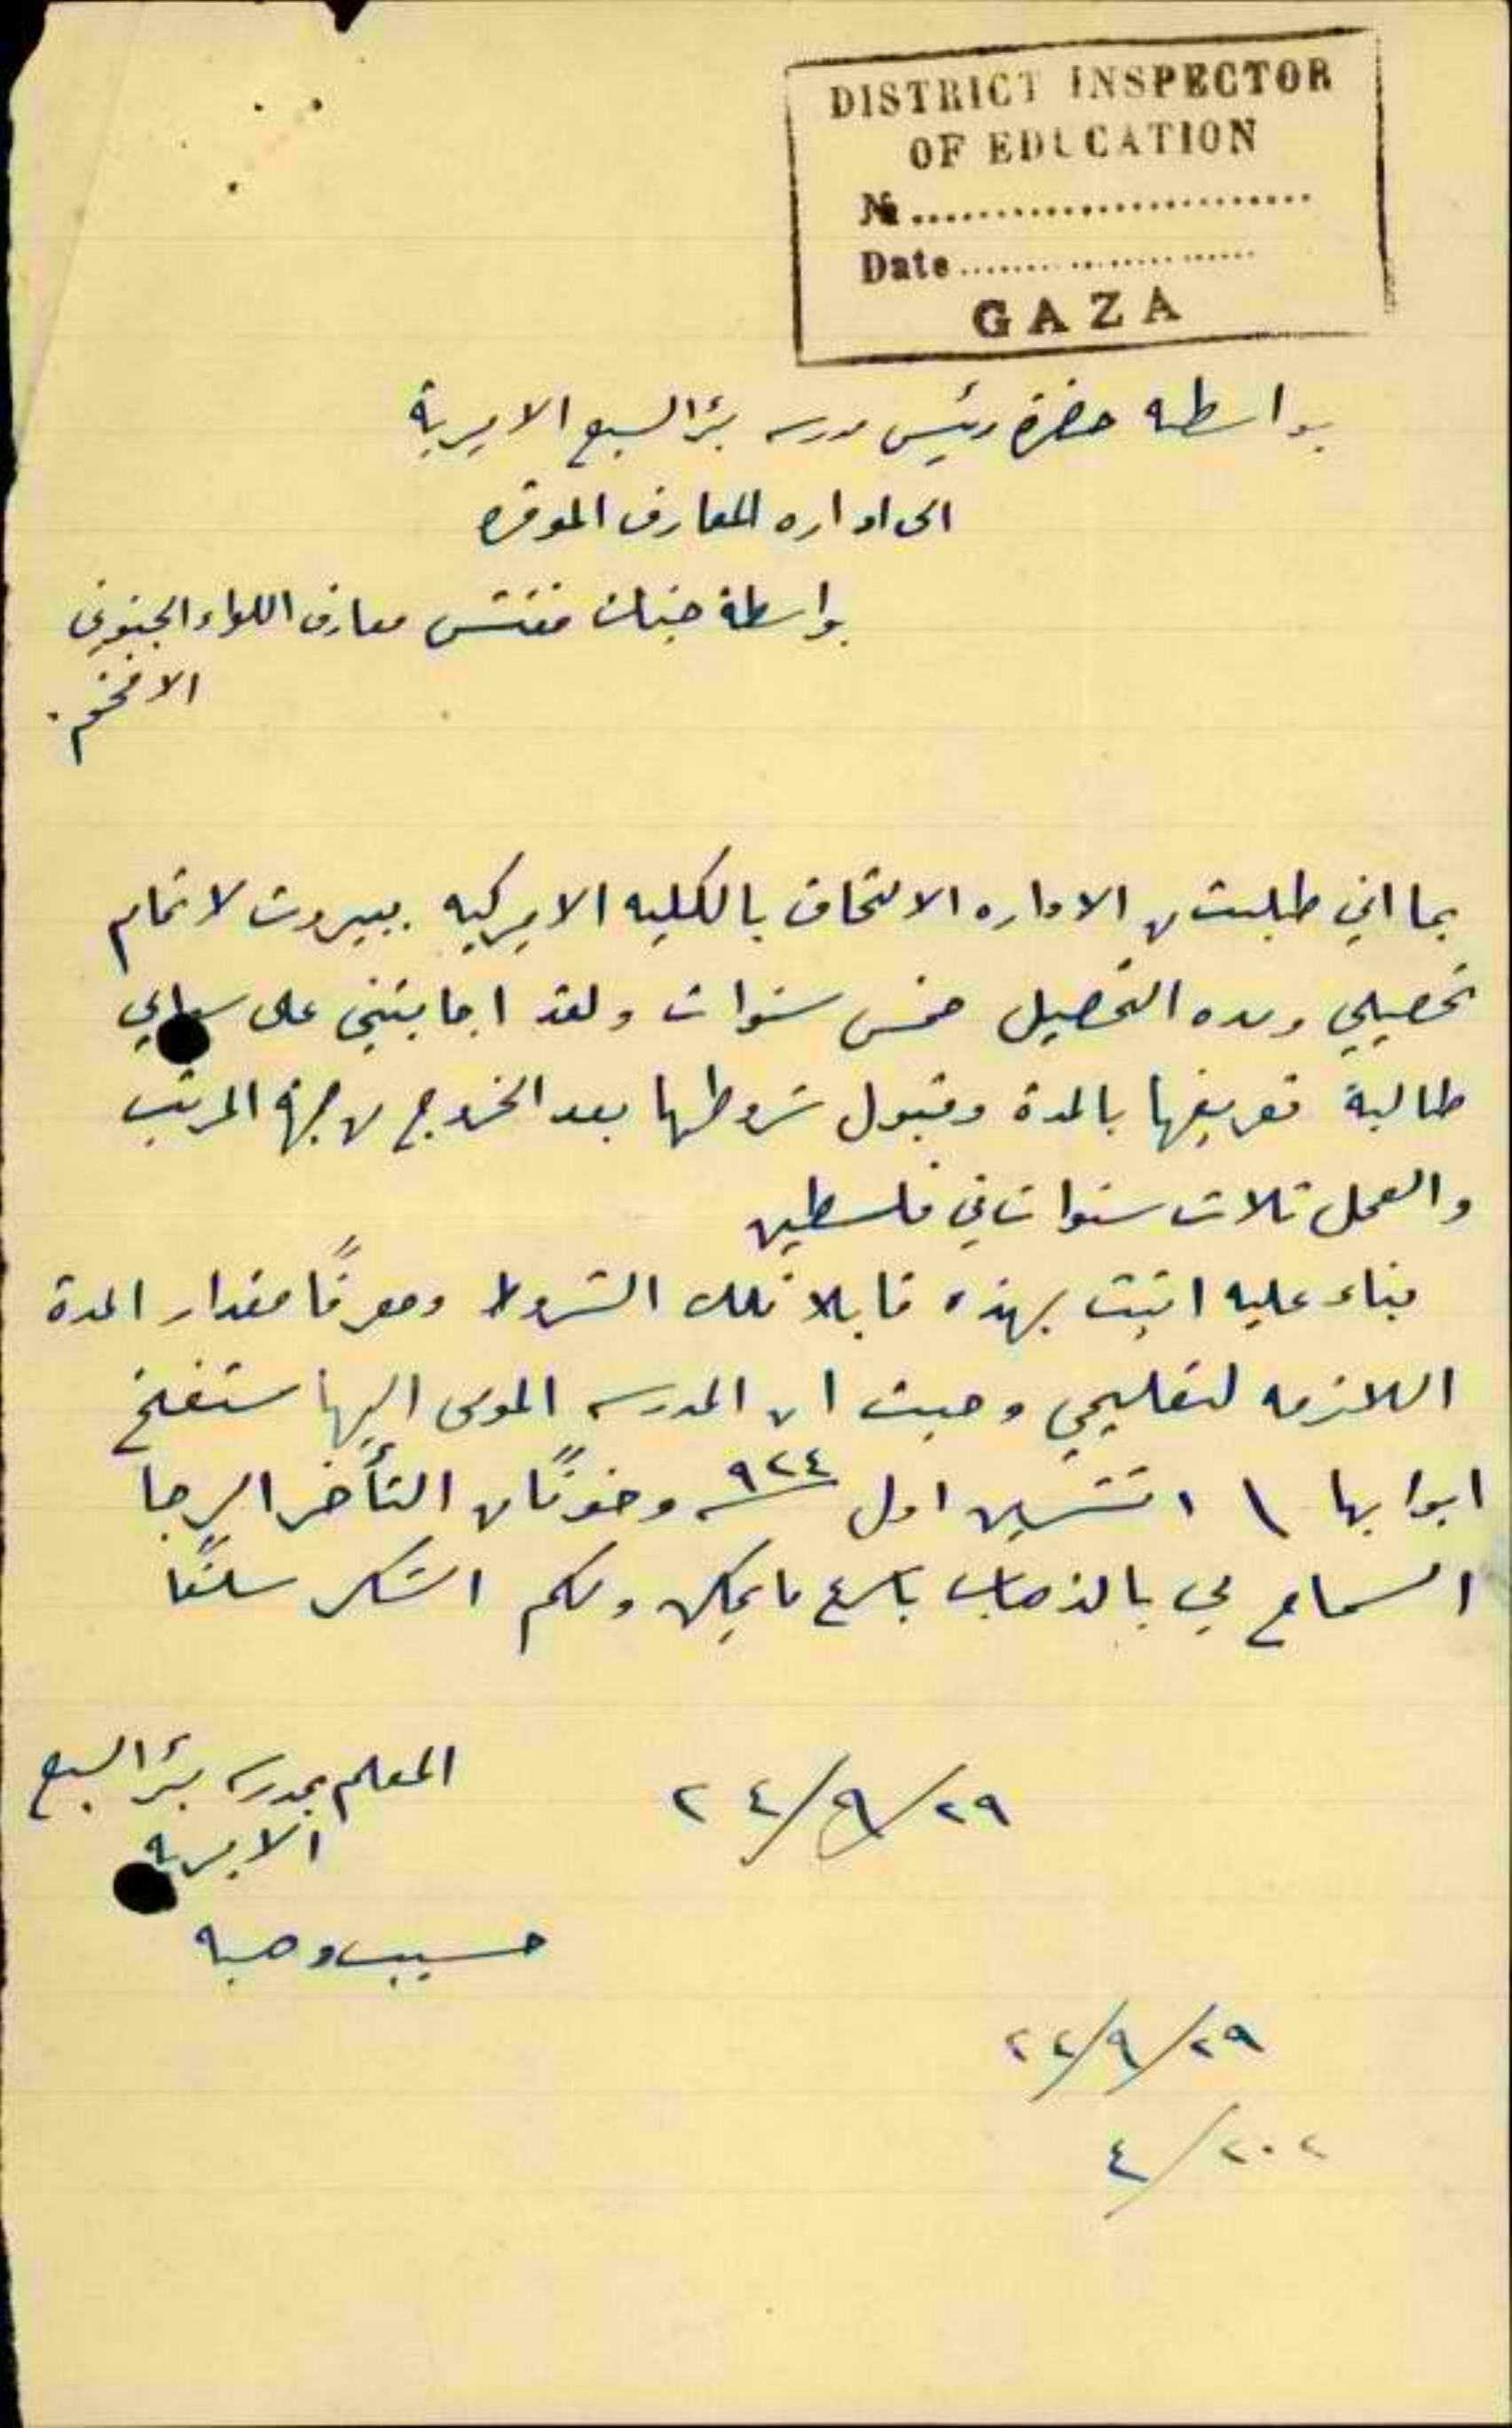 DISTRICT INSPECTOR
OF EDUCATION
№ ........................
Date ........................
GAZA
بواسطه حضرة رئيس مدرسه بئر السبع الاميرية
الى اداره المعارف الموقره
بواسطة جناب مفتش معارف اللواء الجنوبي
الافخم.
بما اني طلبت من الاداره الالتحاق بالكليه الاميركيه ببيروت لاتمام
تحصيلي ومده التحصيل خمس سنوات ولقد اجابتني على سؤالي
طالبة تعريفها بالمدة وقبول شروطها بعد الخروج من جهة المرتب
والعمل ثلاث سنوات في فلسطين
بناء عليه اتيت بهذه قابلا تلك الشروط ومعرفًا مقدار المدة
اللازمه لتعليمي وحيث ان المدرسه المومى اليها ستفتح
ابوابها ١ تشرين اول ٩٢٤ وخوفًا من التأخر الرجا
السماح لي بالذهاب باسرع ما يمكن ولكم الشكر سلفًا
٢٤/٩/٢٩
المعلم بمدرسه بئر السبع
الاميرية
حسيب وهبه
٢٤/٩/٢٩
٤/٢٠٢